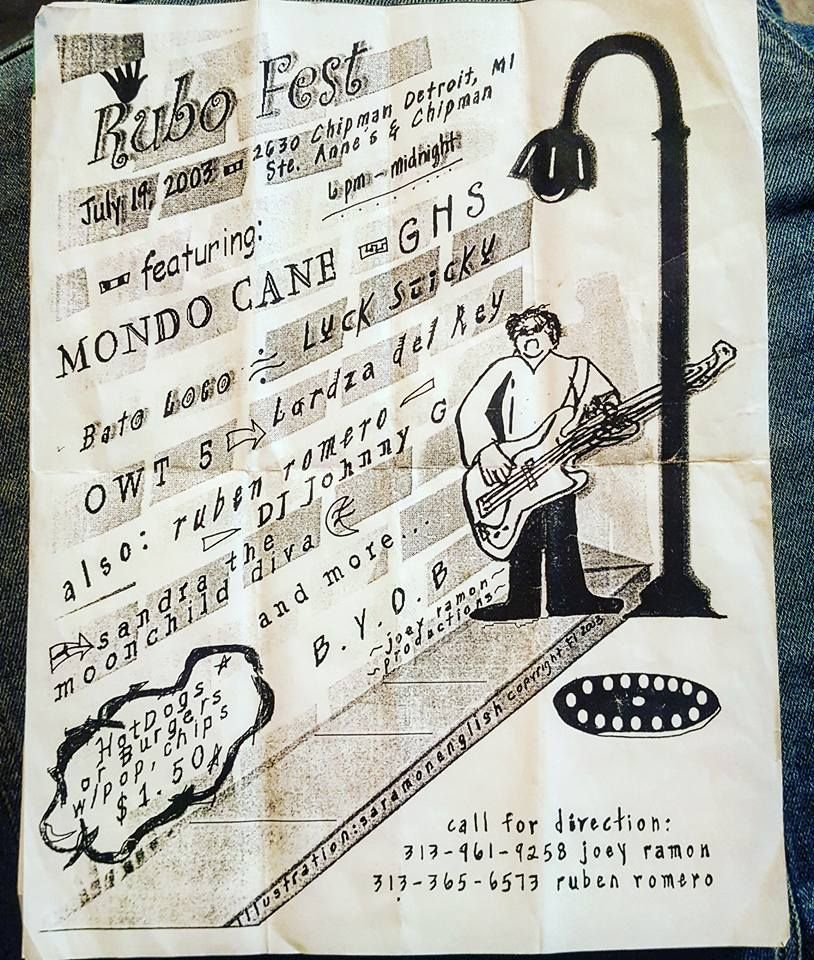 Rubo Fest
July 19, 2003 2630 Chipman Detroit, MI
Ste. Anne's & Chipman
6 pm - midnight
featuring:
MONDO CANE GHS
Bato Loco Luck Sticky
OWT 5 Lardza del Rey
also: ruben romero
DJ Johnny G
sandra the
moonchild diva
and more...
B.Y.O.B
~joey ramon~
~productions~
HotDogs
or Burgers
w/pop, chips
$1.50
Illustration: saramonenglish copyright 2003
call for direction:
313-961-9258 joey ramon
313-365-6573 ruben romero